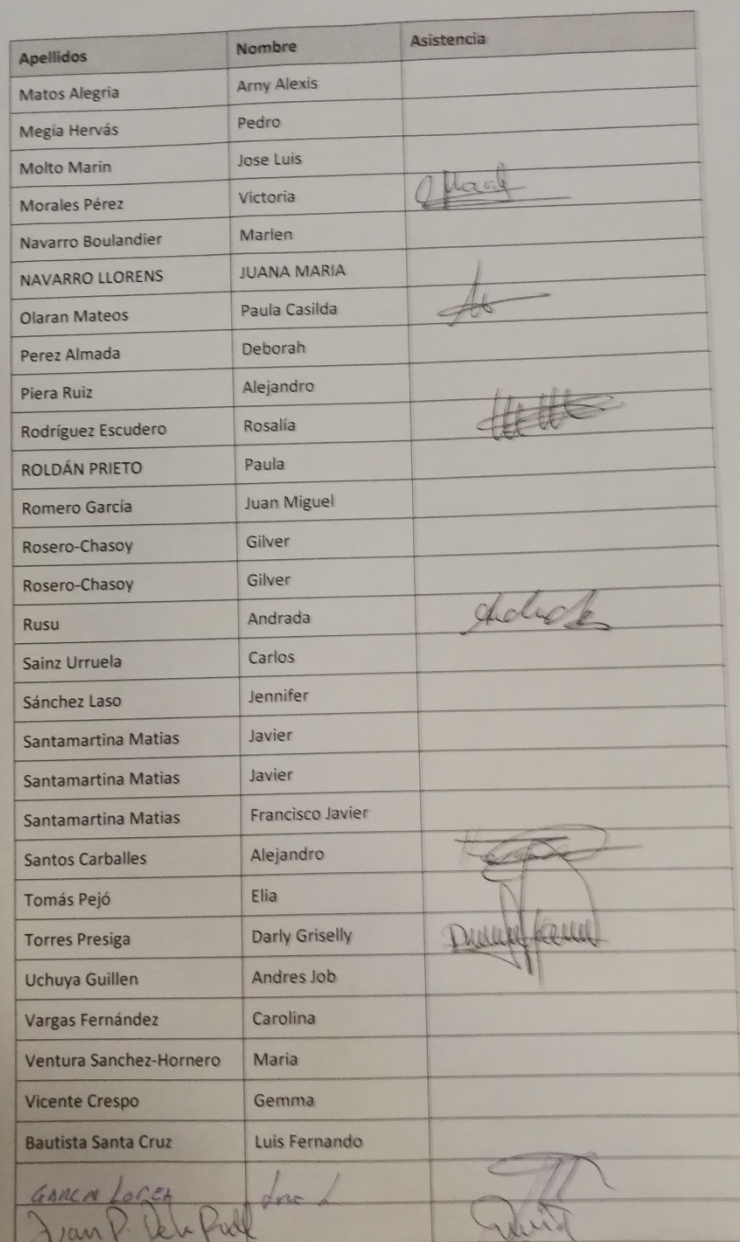 Apellidos Nombre Asistencia
Matos Alegria Arny Alexis
Megía Hervás Pedro
Molto Marin Jose Luis
Morales Pérez Victoria
Navarro Boulandier Marlen
NAVARRO LLORENS JUANA MARIA
Olaran Mateos Paula Casilda
Perez Almada Deborah
Piera Ruiz Alejandro
Rodríguez Escudero Rosalía
ROLDÁN PRIETO Paula
Romero García Juan Miguel
Rosero-Chasoy Gilver
Rosero-Chasoy Gilver
Rusu Andrada
Sainz Urruela Carlos
Sánchez Laso Jennifer
Santamartina Matias Javier
Santamartina Matias Javier
Santamartina Matias Francisco Javier
Santos Carballes Alejandro
Tomás Pejó Elia
Torres Presiga Darly Griselly
Uchuya Guillen Andres Job
Vargas Fernández Carolina
Ventura Sanchez-Hornero Maria
Vicente Crespo Gemma
Bautista Santa Cruz Luis Fernando
Juan P.